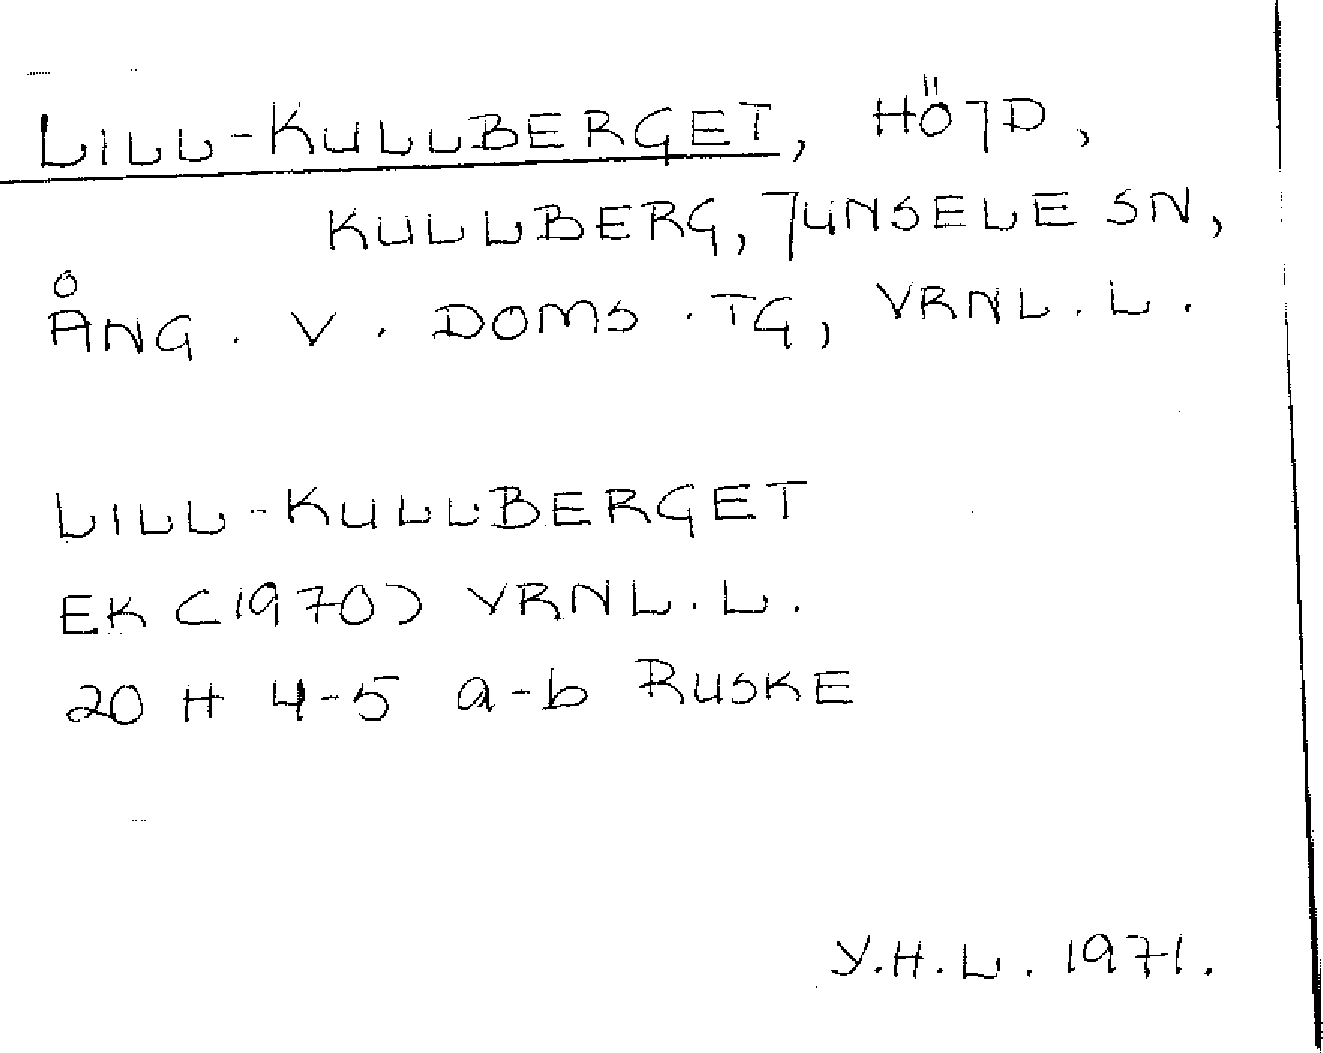 LILL-KULLBERGET, HÖJD,
KULLBERG, JUNSELE SN,
ÅNG. V. DOMS. TG, VRNL. L.
LILL-KULLBERGET
EK (1970) VRNL. L.
20 H 4-5 a-b RUSKE
Y.H.L. 1971.